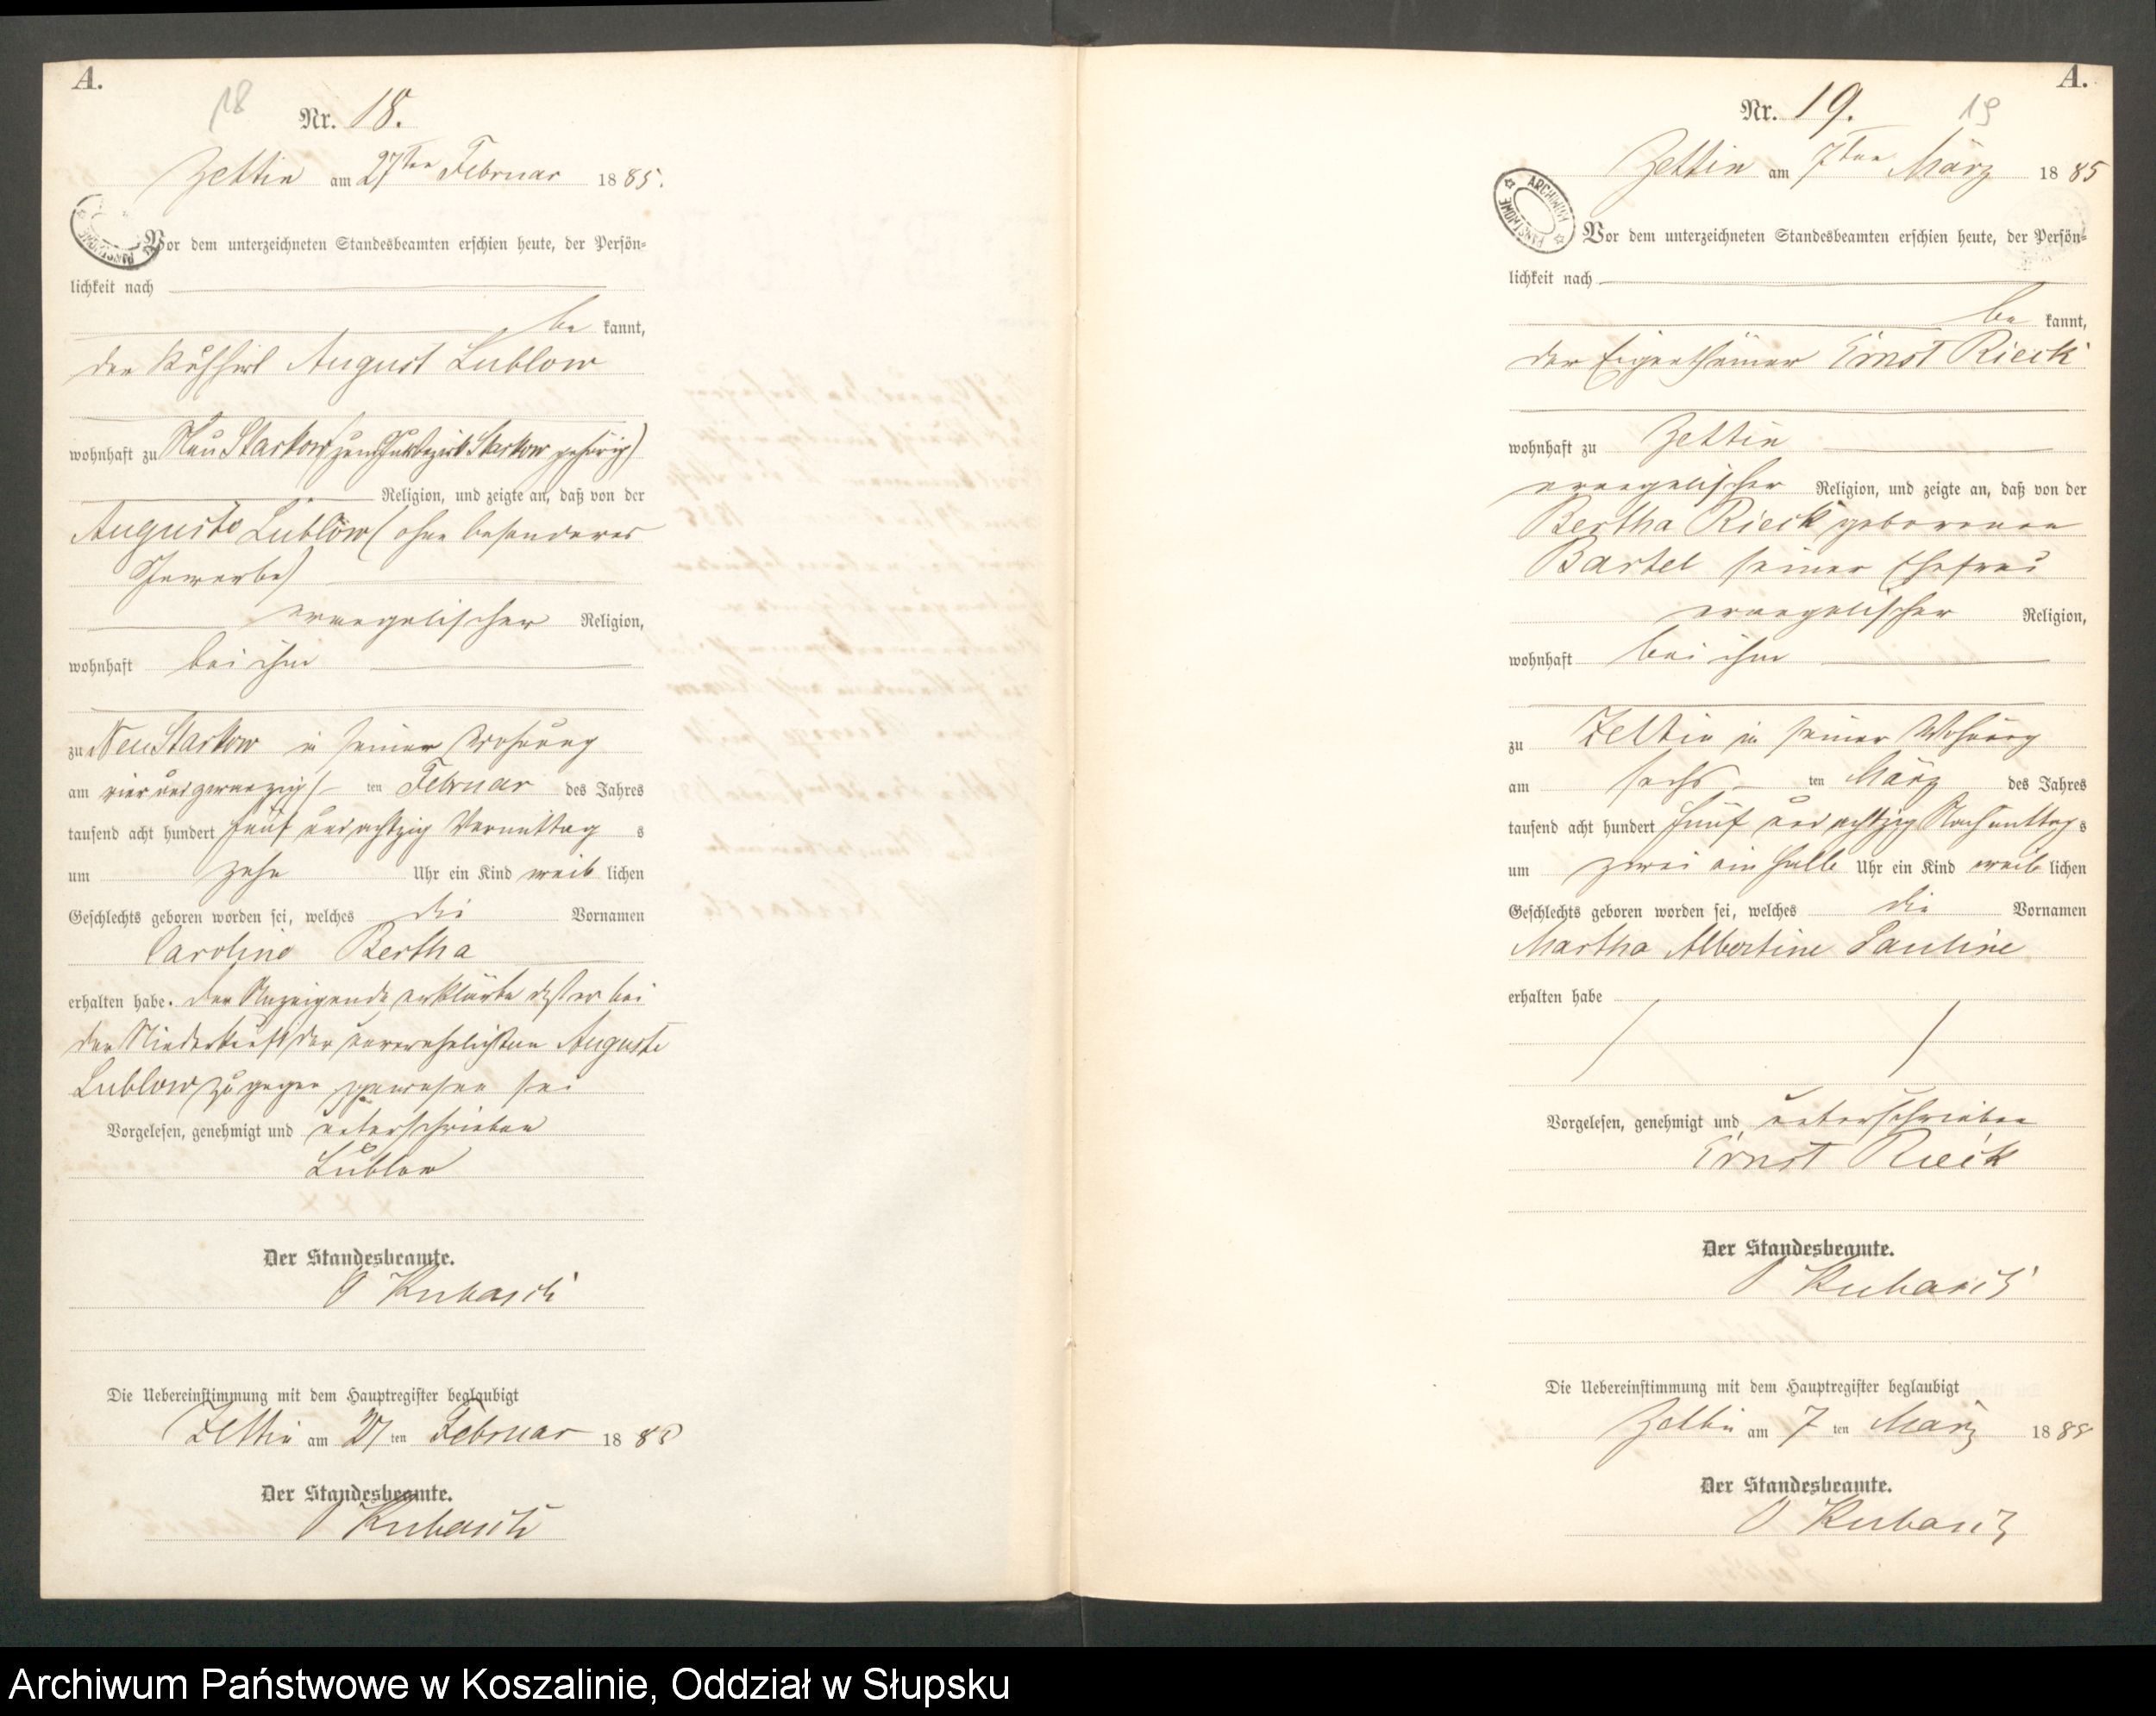 A.
18
Nr. 18.
Zettin am 27ten Februar 1885.
Vor dem unterzeichneten Standesbeamten erschien heute, der Persön=
lichkeit nach
be kannt,
der Kuhhirt August Lublow
wohnhaft zu Neu Starkow (zum Gutsbezirk Starkow gehörig)
Religion, und zeigte an, daß von der
Auguste Lublow (ohne besonderes
Gewerbe)
evangelischer Religion,
wohnhaft bei ihm
zu Neu Starkow in seiner Wohnung
am vier und zwanzigs ten Februar des Jahres
tausend acht hundert fünf und achtzig Vormittag s
um zehn Uhr ein Kind weib lichen
Geschlechts geboren worden sei, welches die Vornamen
Caroline Bertha
erhalten habe. Der Anzeigende erklärte daß er bei
der Niederkunft der unverehelichten Auguste
Lublow zugegen gewesen sei
Vorgelesen, genehmigt und unterschrieben
Lublow
Der Standesbeamte.
Die Uebereinstimmung mit dem Hauptregister beglaubigt
Zettin am 27 ten Februar 1885
Der Standesbeamte.
A.
Nr. 19.
19
Zettin am 7ten März 1885
ARCHIWUM PAŃSTWOWE
Vor dem unterzeichneten Standesbeamten erschien heute, der Persön=
lichkeit nach
be kannt,
der Eigenthümer Ernst Rieck
wohnhaft zu Zettin
evangelischer Religion, und zeigte an, daß von der
Bertha Rieck geborenen
Bartel seiner Ehefrau
evangelischer Religion,
wohnhaft bei ihm
zu Zettin in seiner Wohnung
am sechs ten März des Jahres
tausend acht hundert fünf und achtzig Nachmittag s
um zwei ein halb Uhr ein Kind weib lichen
Geschlechts geboren worden sei, welches die Vornamen
Martha Albertine Pauline
erhalten habe
Vorgelesen, genehmigt und unterschrieben
Ernst Rieck
Der Standesbeamte.
Die Uebereinstimmung mit dem Hauptregister beglaubigt
Zettin am 7 ten März 1885
Der Standesbeamte.
Archiwum Państwowe w Koszalinie, Oddział w Słupsku